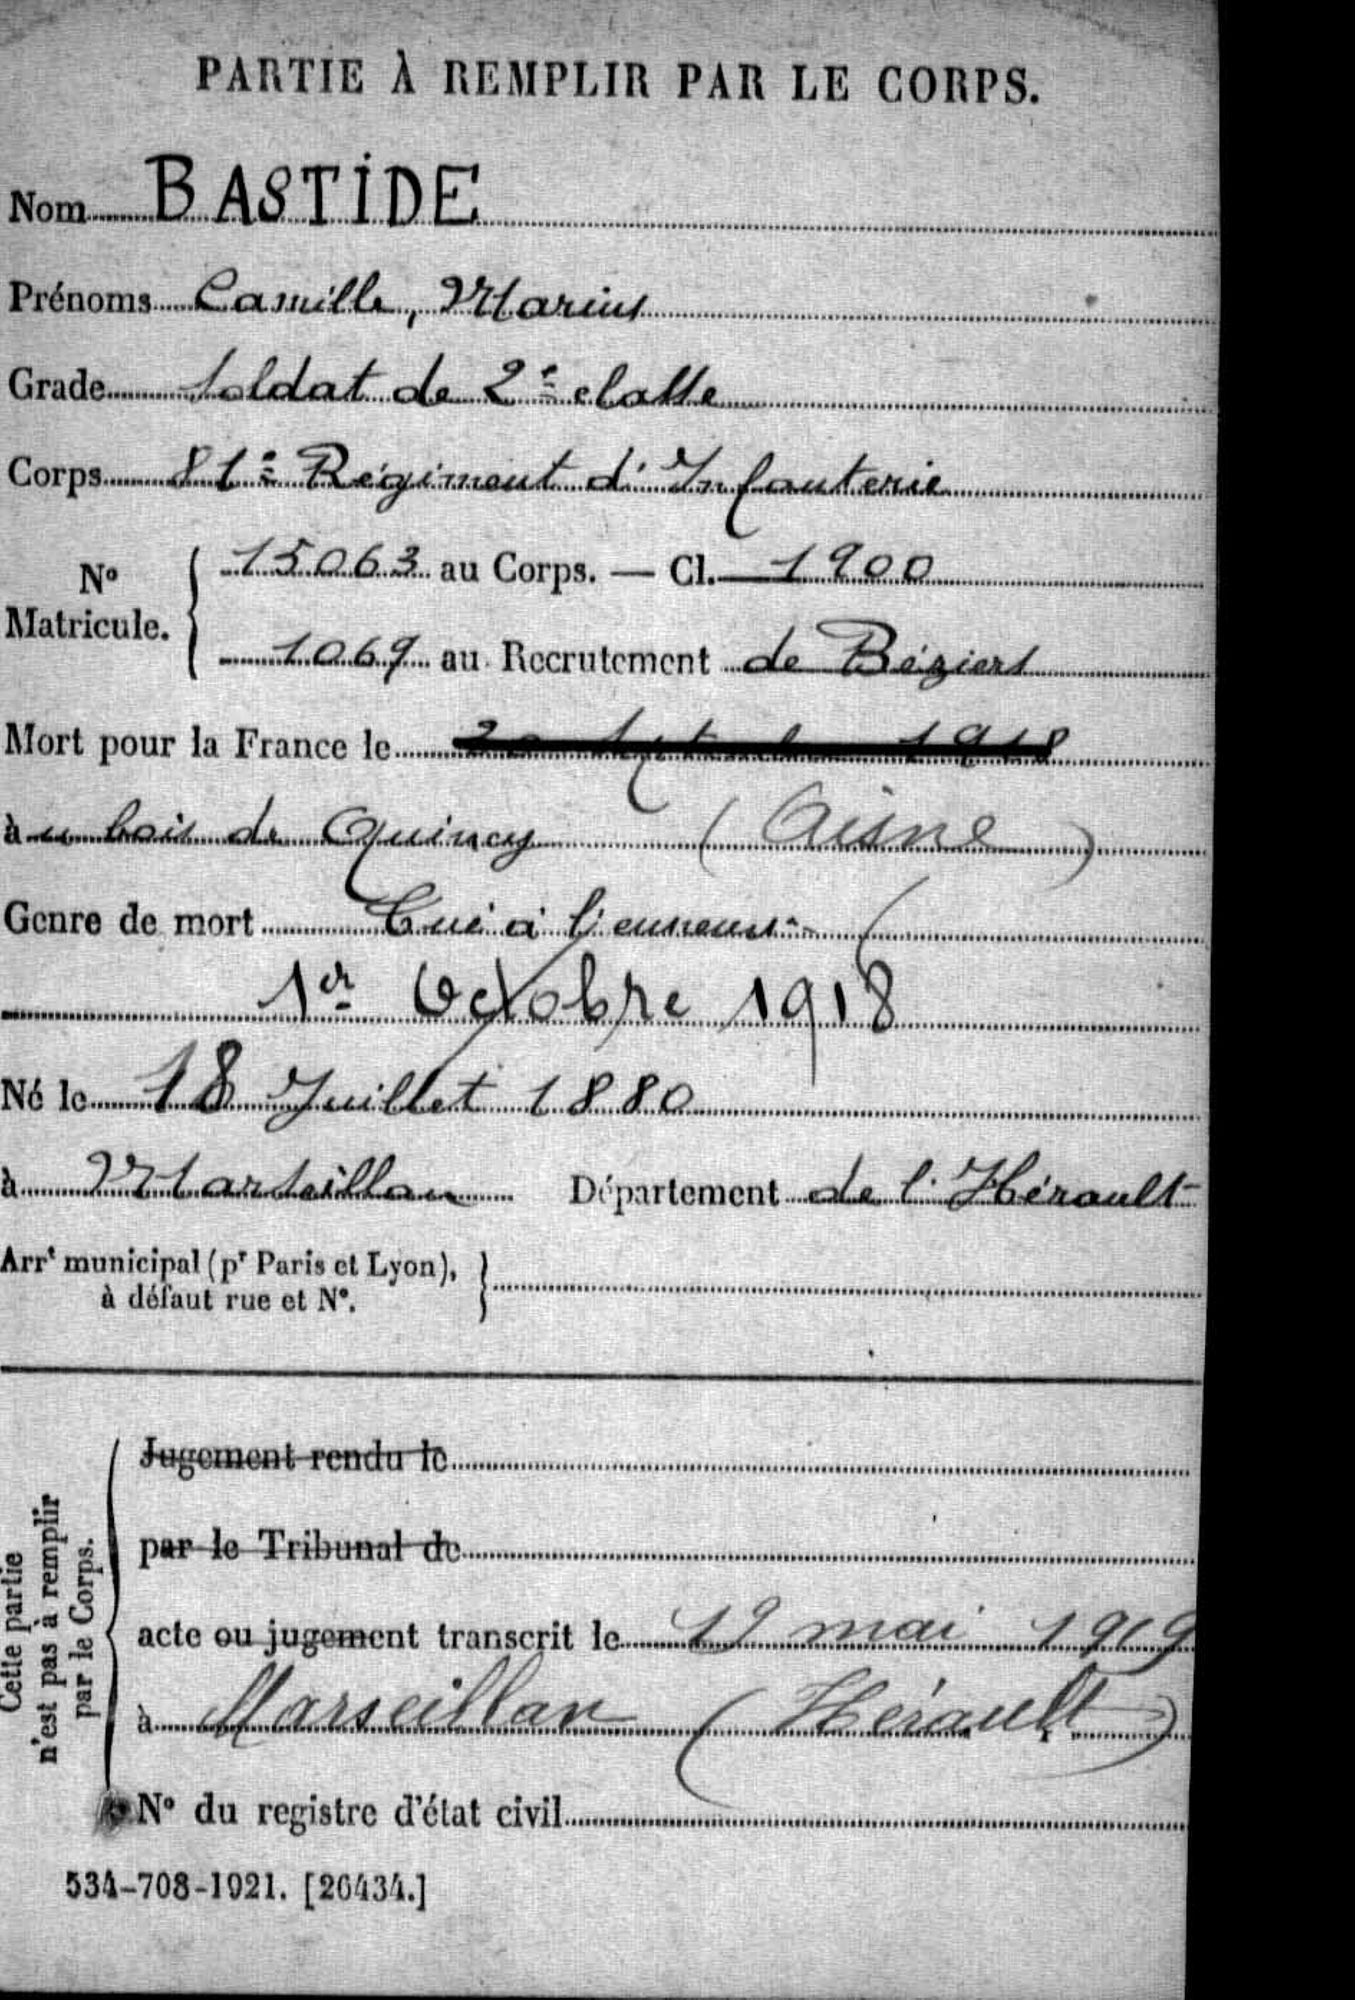 PARTIE À REMPLIR PAR LE CORPS.
Nom BASTIDE
Prénoms Camille, Marius
Grade Soldat de 2e classe
Corps 81e Régiment d'Infanterie
No Matricule. 15063 au Corps. — Cl. 1900
1069 au Recrutement de Béziers
Mort pour la France le 1918
à u bois de Quincy (Aisne)
Genre de mort Tué à l'ennemi
1er Octobre 1918
Né le 18 Juillet 1880
à Marseillan Département de l'Hérault
Arrt municipal (pr Paris et Lyon),
à défaut rue et No.
Cette partie
n'est pas à remplir
par le Corps.
Jugement rendu le
par le Tribunal de
acte ou jugement transcrit le 19 mai 1919
à Marseillan (Hérault)
No du registre d'état civil
534-708-1921. [26434.]